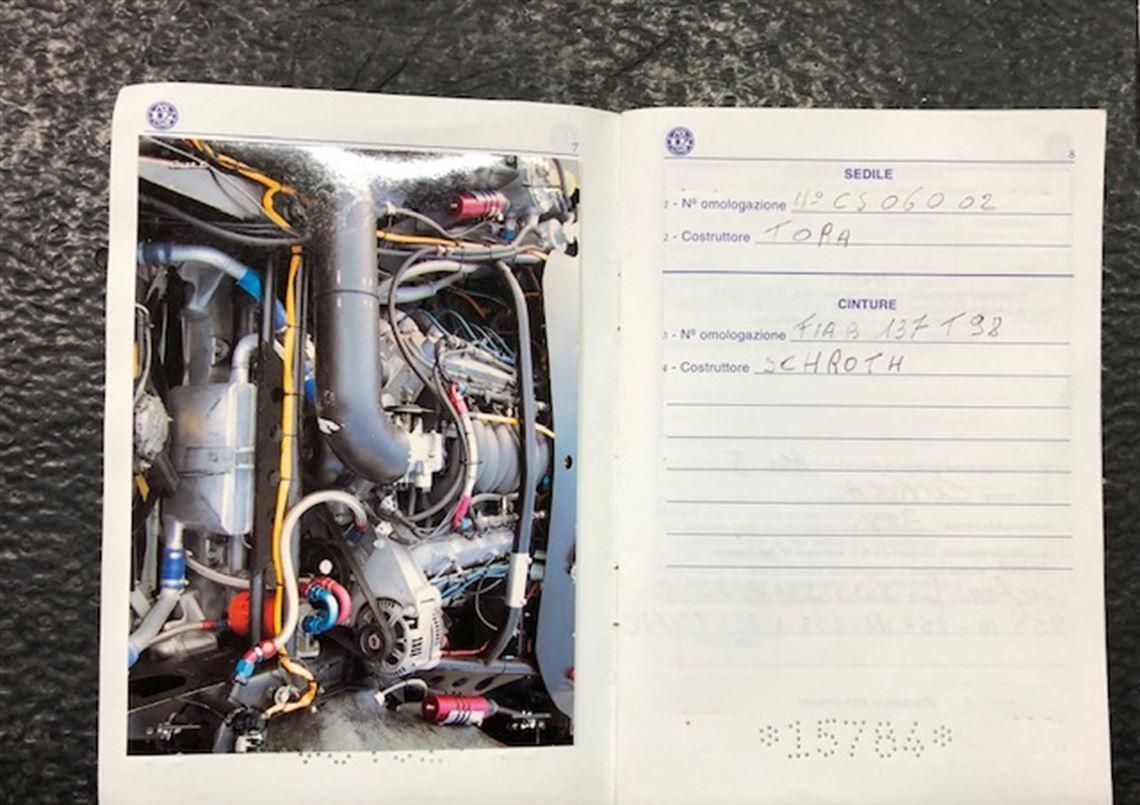 7
8
SEDILE
1 - Nº omologazione Nº CS 060 02
2 - Costruttore TORA
CINTURE
3 - Nº omologazione FIA B 137 T 98
4 - Costruttore SCHROTH
*15784*